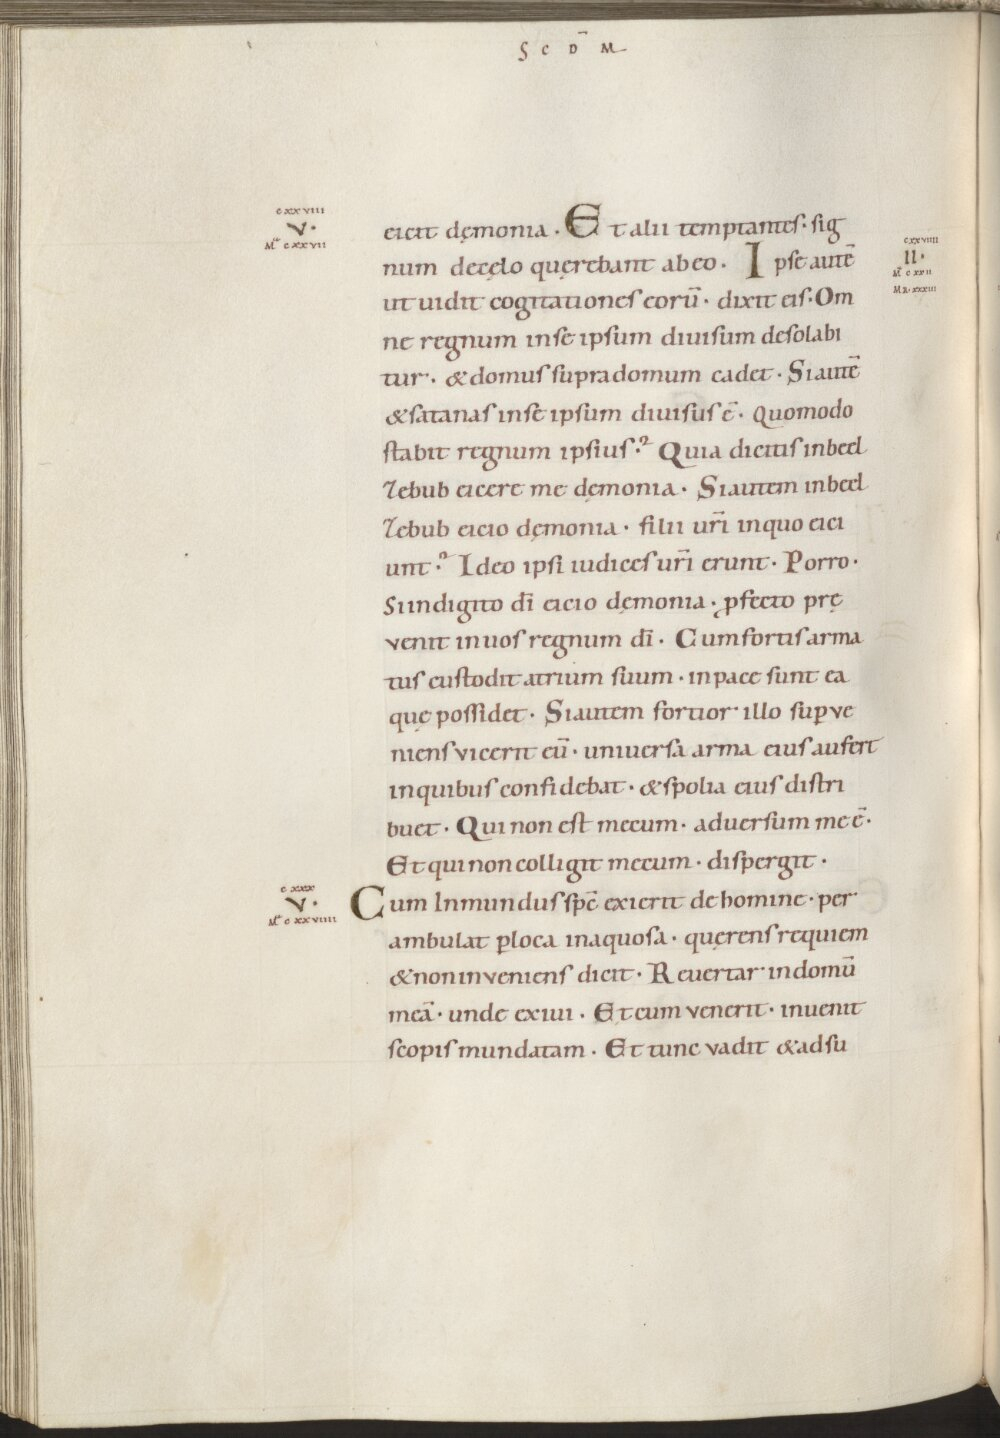 Scd̄m
cxxviii
v·
Mͭ cxxvii
eicit dęmonia · Et alii temptantes · sig
num decęlo quęrebant abeo · Ipse autē
cxxviiii
ii·
Mͭ cxxii
Mr·xxxiii
ut vidit cogitationes eorū · dixit eis · Om
ne regnum inse ipsum divisum desolabi
tur · &domus supra domum cadet · Siautē
&satanas inse ipsum divisus ē · quomodo
stabit regnum ipsius ? Quia dicitis inbeel
zebub eicere me dęmonia · Siautem inbeel
zebub eicio dęmonia · filii urī inquo eici
unt ? Ideo ipsi iudices urī erunt · Porro ·
Siindigito dī eicio dęmonia · ꝓfecto prę
venit invos regnum dī · Cumfortis arma
tus custodit atrium suum · inpace sunt ea
quę possidet · Siautem fortior illo suꝑve
niens vicerit eū · universa arma eius aufert
inquibus confidebat · &spolia eius distri
buet · Qui non est mecum · adversum me ē ·
Et qui non colligit mecum · dispergit ·
cxxx
v·
Mͭ cxxviiii
Cum Inmundus spc̄ exierit dehomine · per
ambulat ꝑloca inaquosa · quęrens requiem
&noninveniens dicit · Revertar indomū
meā · unde exivi · Et cum venerit · invenit
scopis mundatam · Et tunc vadit &adsu